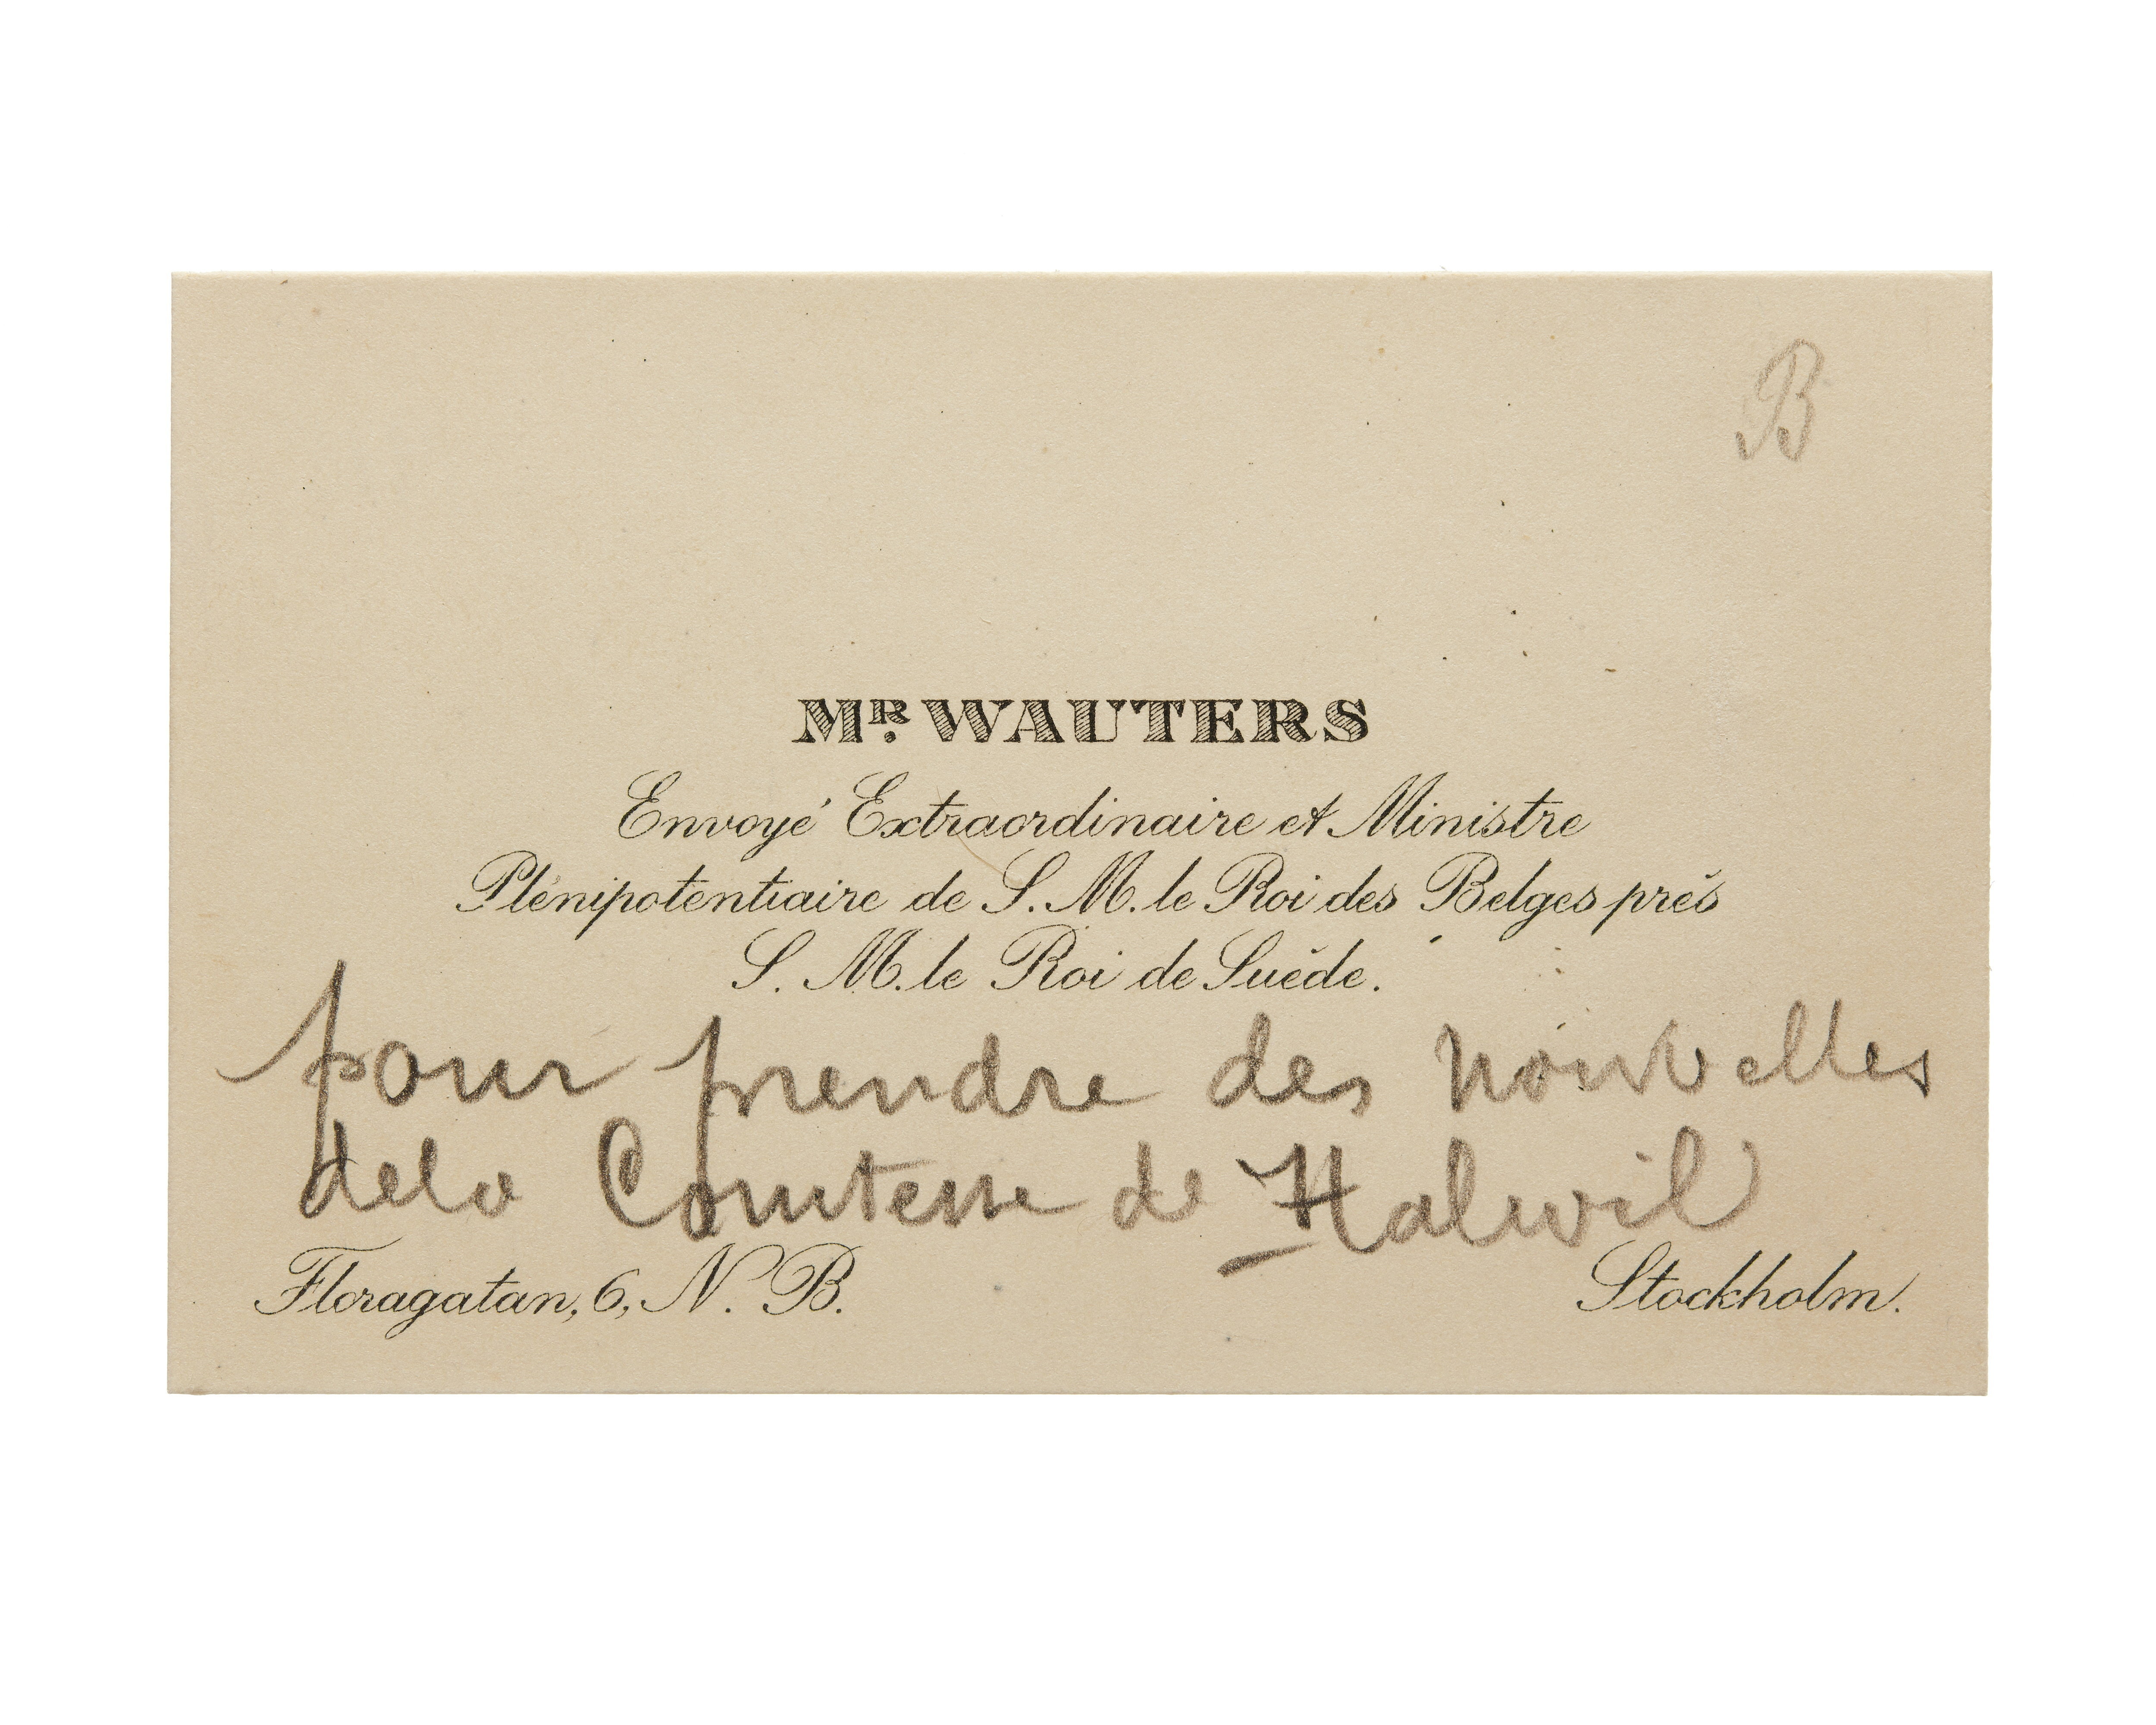 B
Mr. WAUTERS
Envoyé Extraordinaire et Ministre
Plénipotentiaire de S. M. le Roi des Belges près
S. M. le Roi de Suède.
pour prendre des nouvelles
dela Comtesse de Halwil
Floragatan, 6, N. B.
Stockholm.